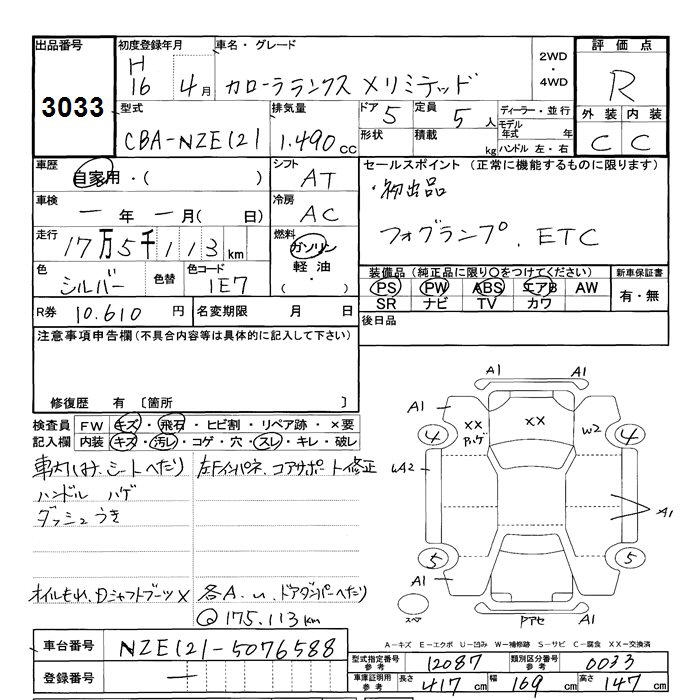 出品番号
3033
初度登録年月
H
16 4月
車名・グレード
カローラランクス Xリミテッド
2WD
・
4WD
評価点
R
外装 内装
C C
型式
CBA-NZE121
排気量
1.490cc
ドア 5
定員 5人
形状
積載 kg
ディーラー・並行
モデル
年式 年
ハンドル 左・右
車歴
自家用・( )
シフト
AT
車検
一年一月( 日)
冷房
AC
走行
17万5千113km
燃料
ガソリン
軽油・
( )
色
シルバー
色替
色コード
1E7
R券 10.610円
名変期限 月 日
セールスポイント (正常に機能するものに限ります)
・初出品
フォグランプ、ETC
装備品(純正品に限り○をつけてください)
PS PW ABS エアB AW
SR ナビ TV カワ
新車保証書
有・無
後日品
注意事項申告欄(不具合内容等は具体的に記入して下さい)
修復歴 有 〔箇所 〕
検査員
記入欄
FW キズ・飛石・ヒビ割・リペア跡・×要
内装 キズ・汚レ・コゲ・穴・スレ・キレ・破レ
車内しみ、シートへたり
ハンドル ハゲ
ダッシュうき
左Fインパネ、コアサポート修正
オイルもれ、Dシャフトブーツ×
各A.U、ドアダンパーへたり
@175.113km
A1 A1
A1
4
XX
ハゲ
XX
W2
4
WA2
A1
5
5
A1
スペア
アセ
A1
A-キズ E-エクボ U-凹み W-補修跡 S-サビ C-腐食 XX-交換済
車台番号 NZE121-5076588
登録番号 一
型式指定番号
参考
12087
類別区分番号
参考
0033
車庫証明用
参考
長さ 417cm
幅 169cm
高さ 147cm